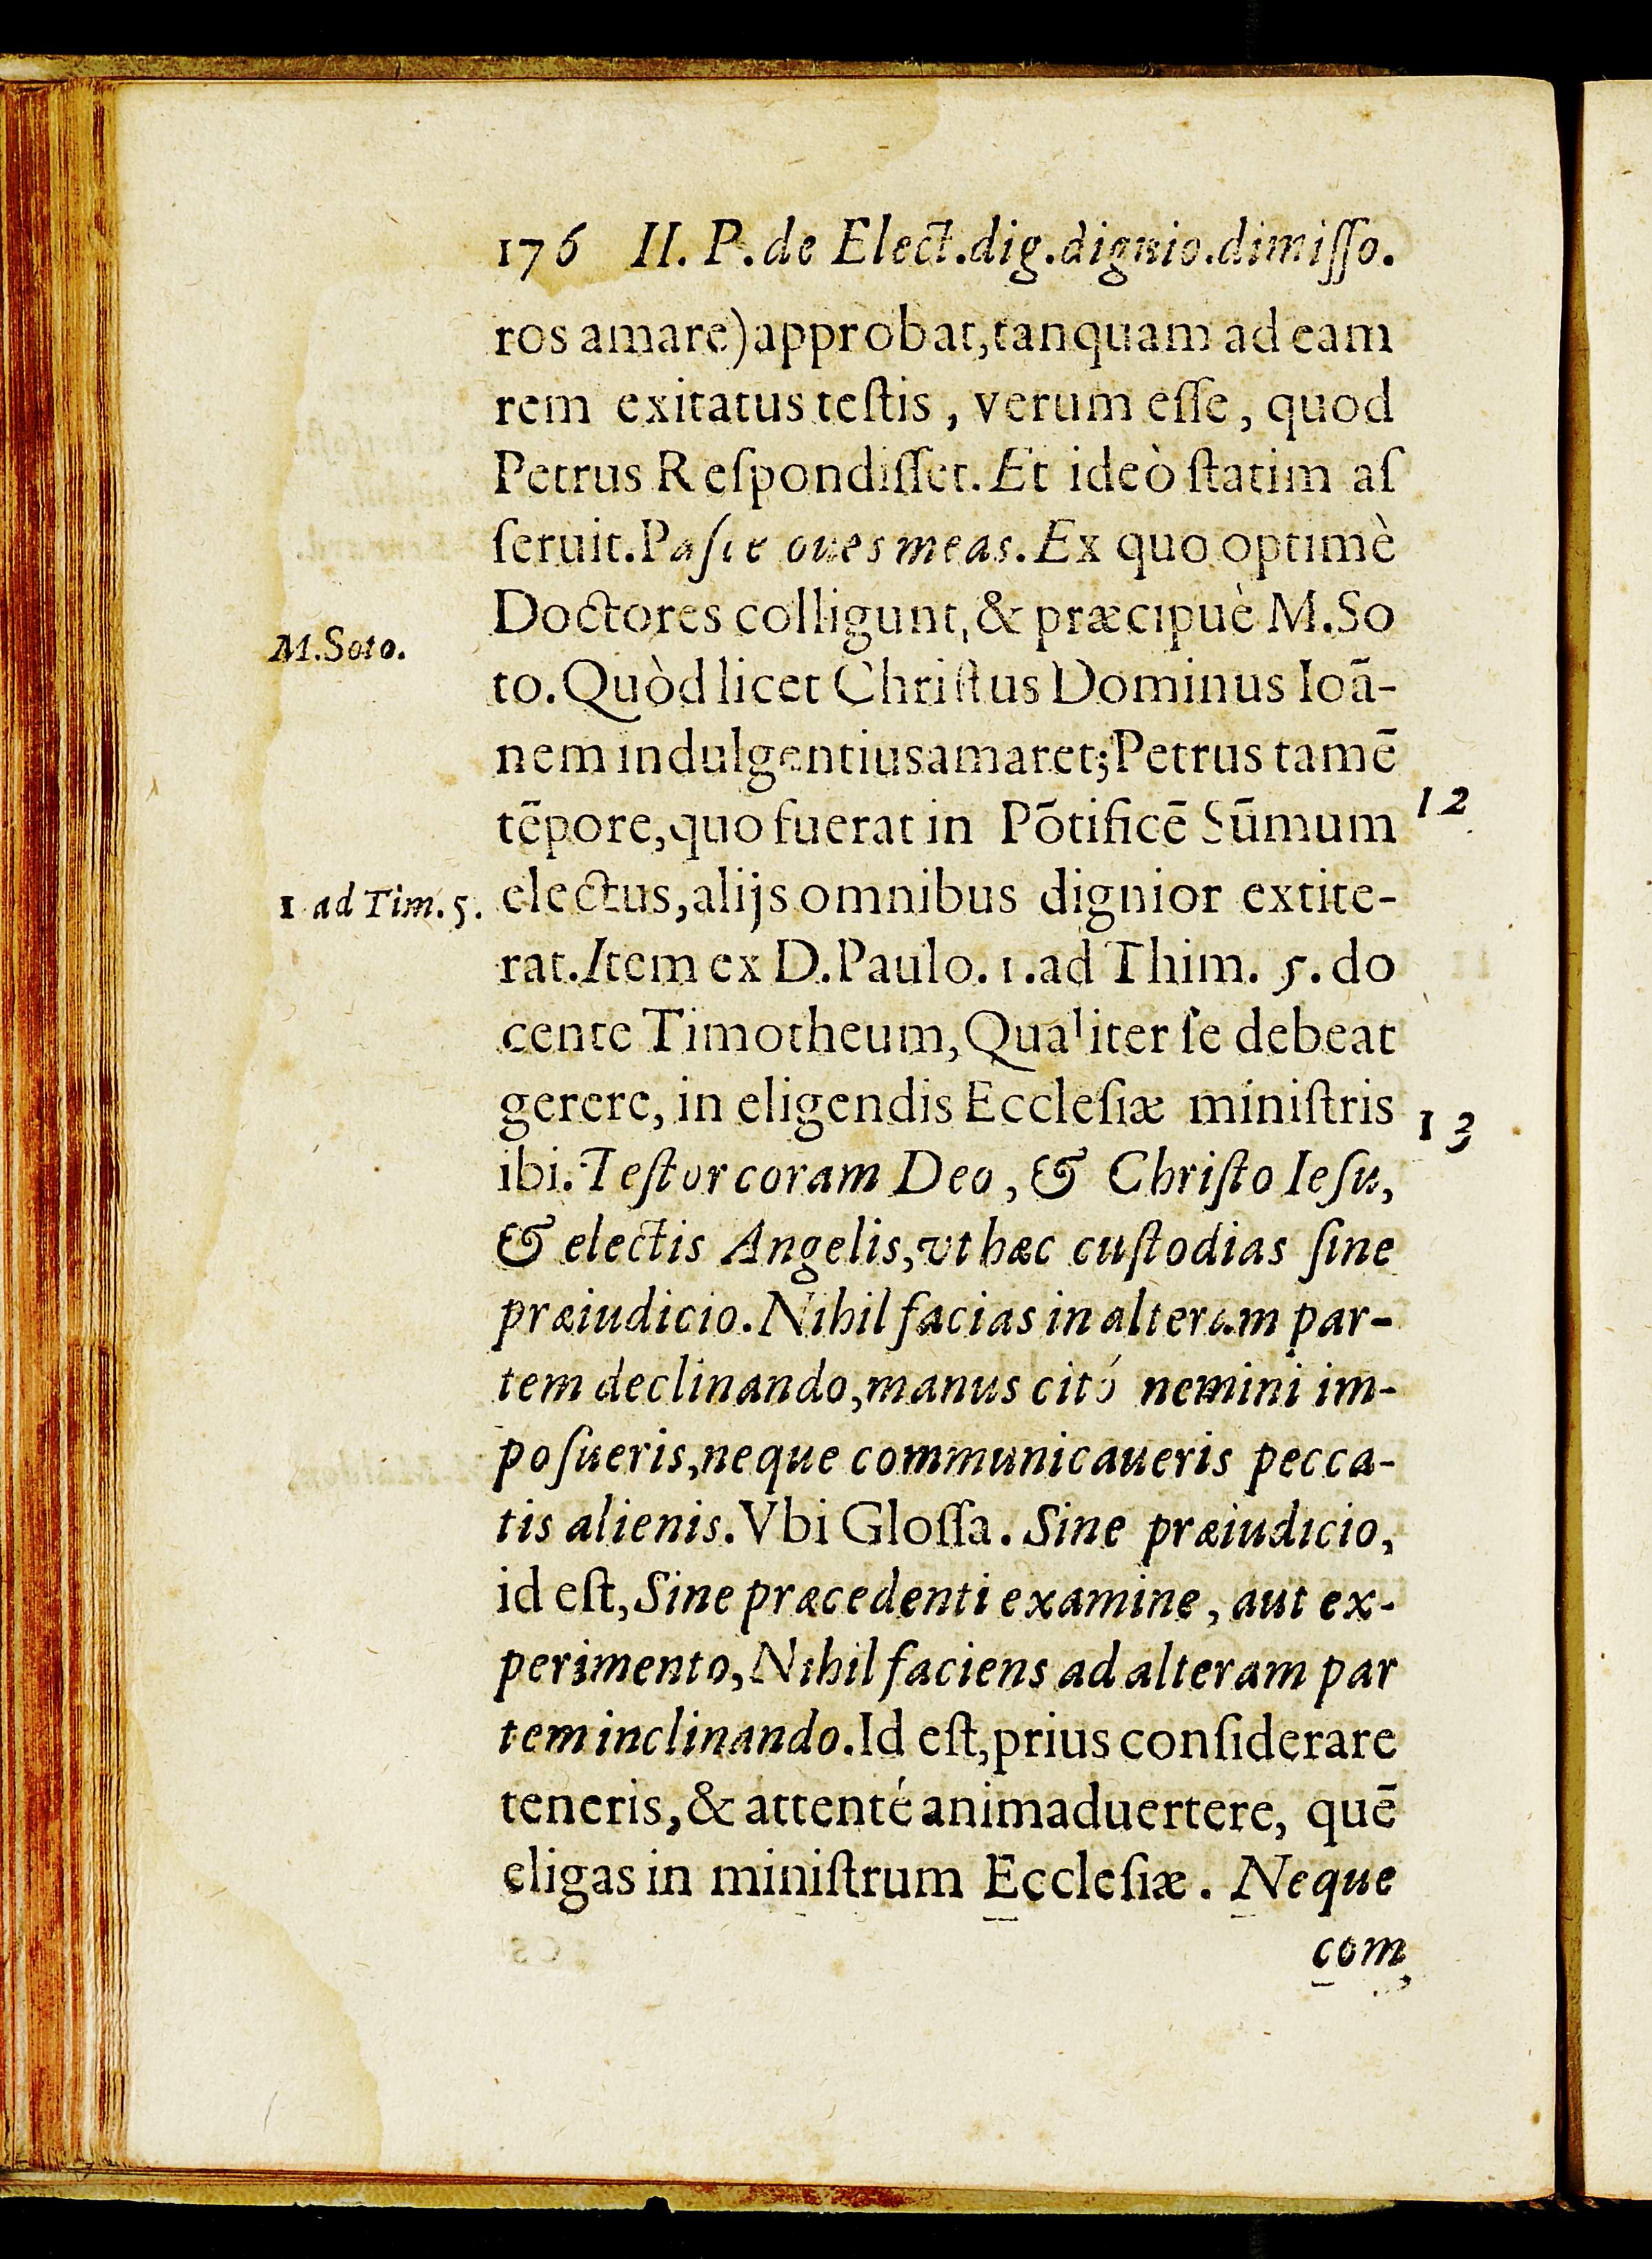 176 II. P. de Elect.dig.dignio.dimiſſo.
ros amare)approbat,tanquam ad eam
rem exitatus teſtis, verum eſſe, quod
Petrus Reſpondiſſet. Et ideò ſtatim aſ
ſeruit. Paſce oues meas. Ex quo optimè
Doctores colligunt, & præcipuè M.So
M.Soto.
to. Quòd licet Chriſtus Dominus Ioã-
nem indulgentius amaret; Petrus tamē
tēpore, quo fuerat in Põtificē Sūmum
12
electus, alijs omnibus dignior extite-
1 ad Tim. 5.
rat. Item ex D. Paulo. 1. ad Thim. 5. do
cente Timotheum, Qualiter ſe debeat
gerere, in eligendis Eccleſiæ miniſtris
13
ibi. Teſtor coram Deo, & Chriſto Ieſu,
& electis Angelis, vt hæc cuſtodias ſine
præiudicio. Nihil facias in alteram par-
tem declinando, manus citó nemini im-
poſueris, neque communicaueris pecca-
tis alienis. Vbi Gloſſa. Sine præiudicio,
id eſt, Sine præcedenti examine, aut ex-
perimento, Nihil faciens ad alteram par
tem inclinando. Id eſt, prius conſiderare
teneris, & attenté animaduertere, quē
eligas in miniſtrum Eccleſiæ. Neque
com